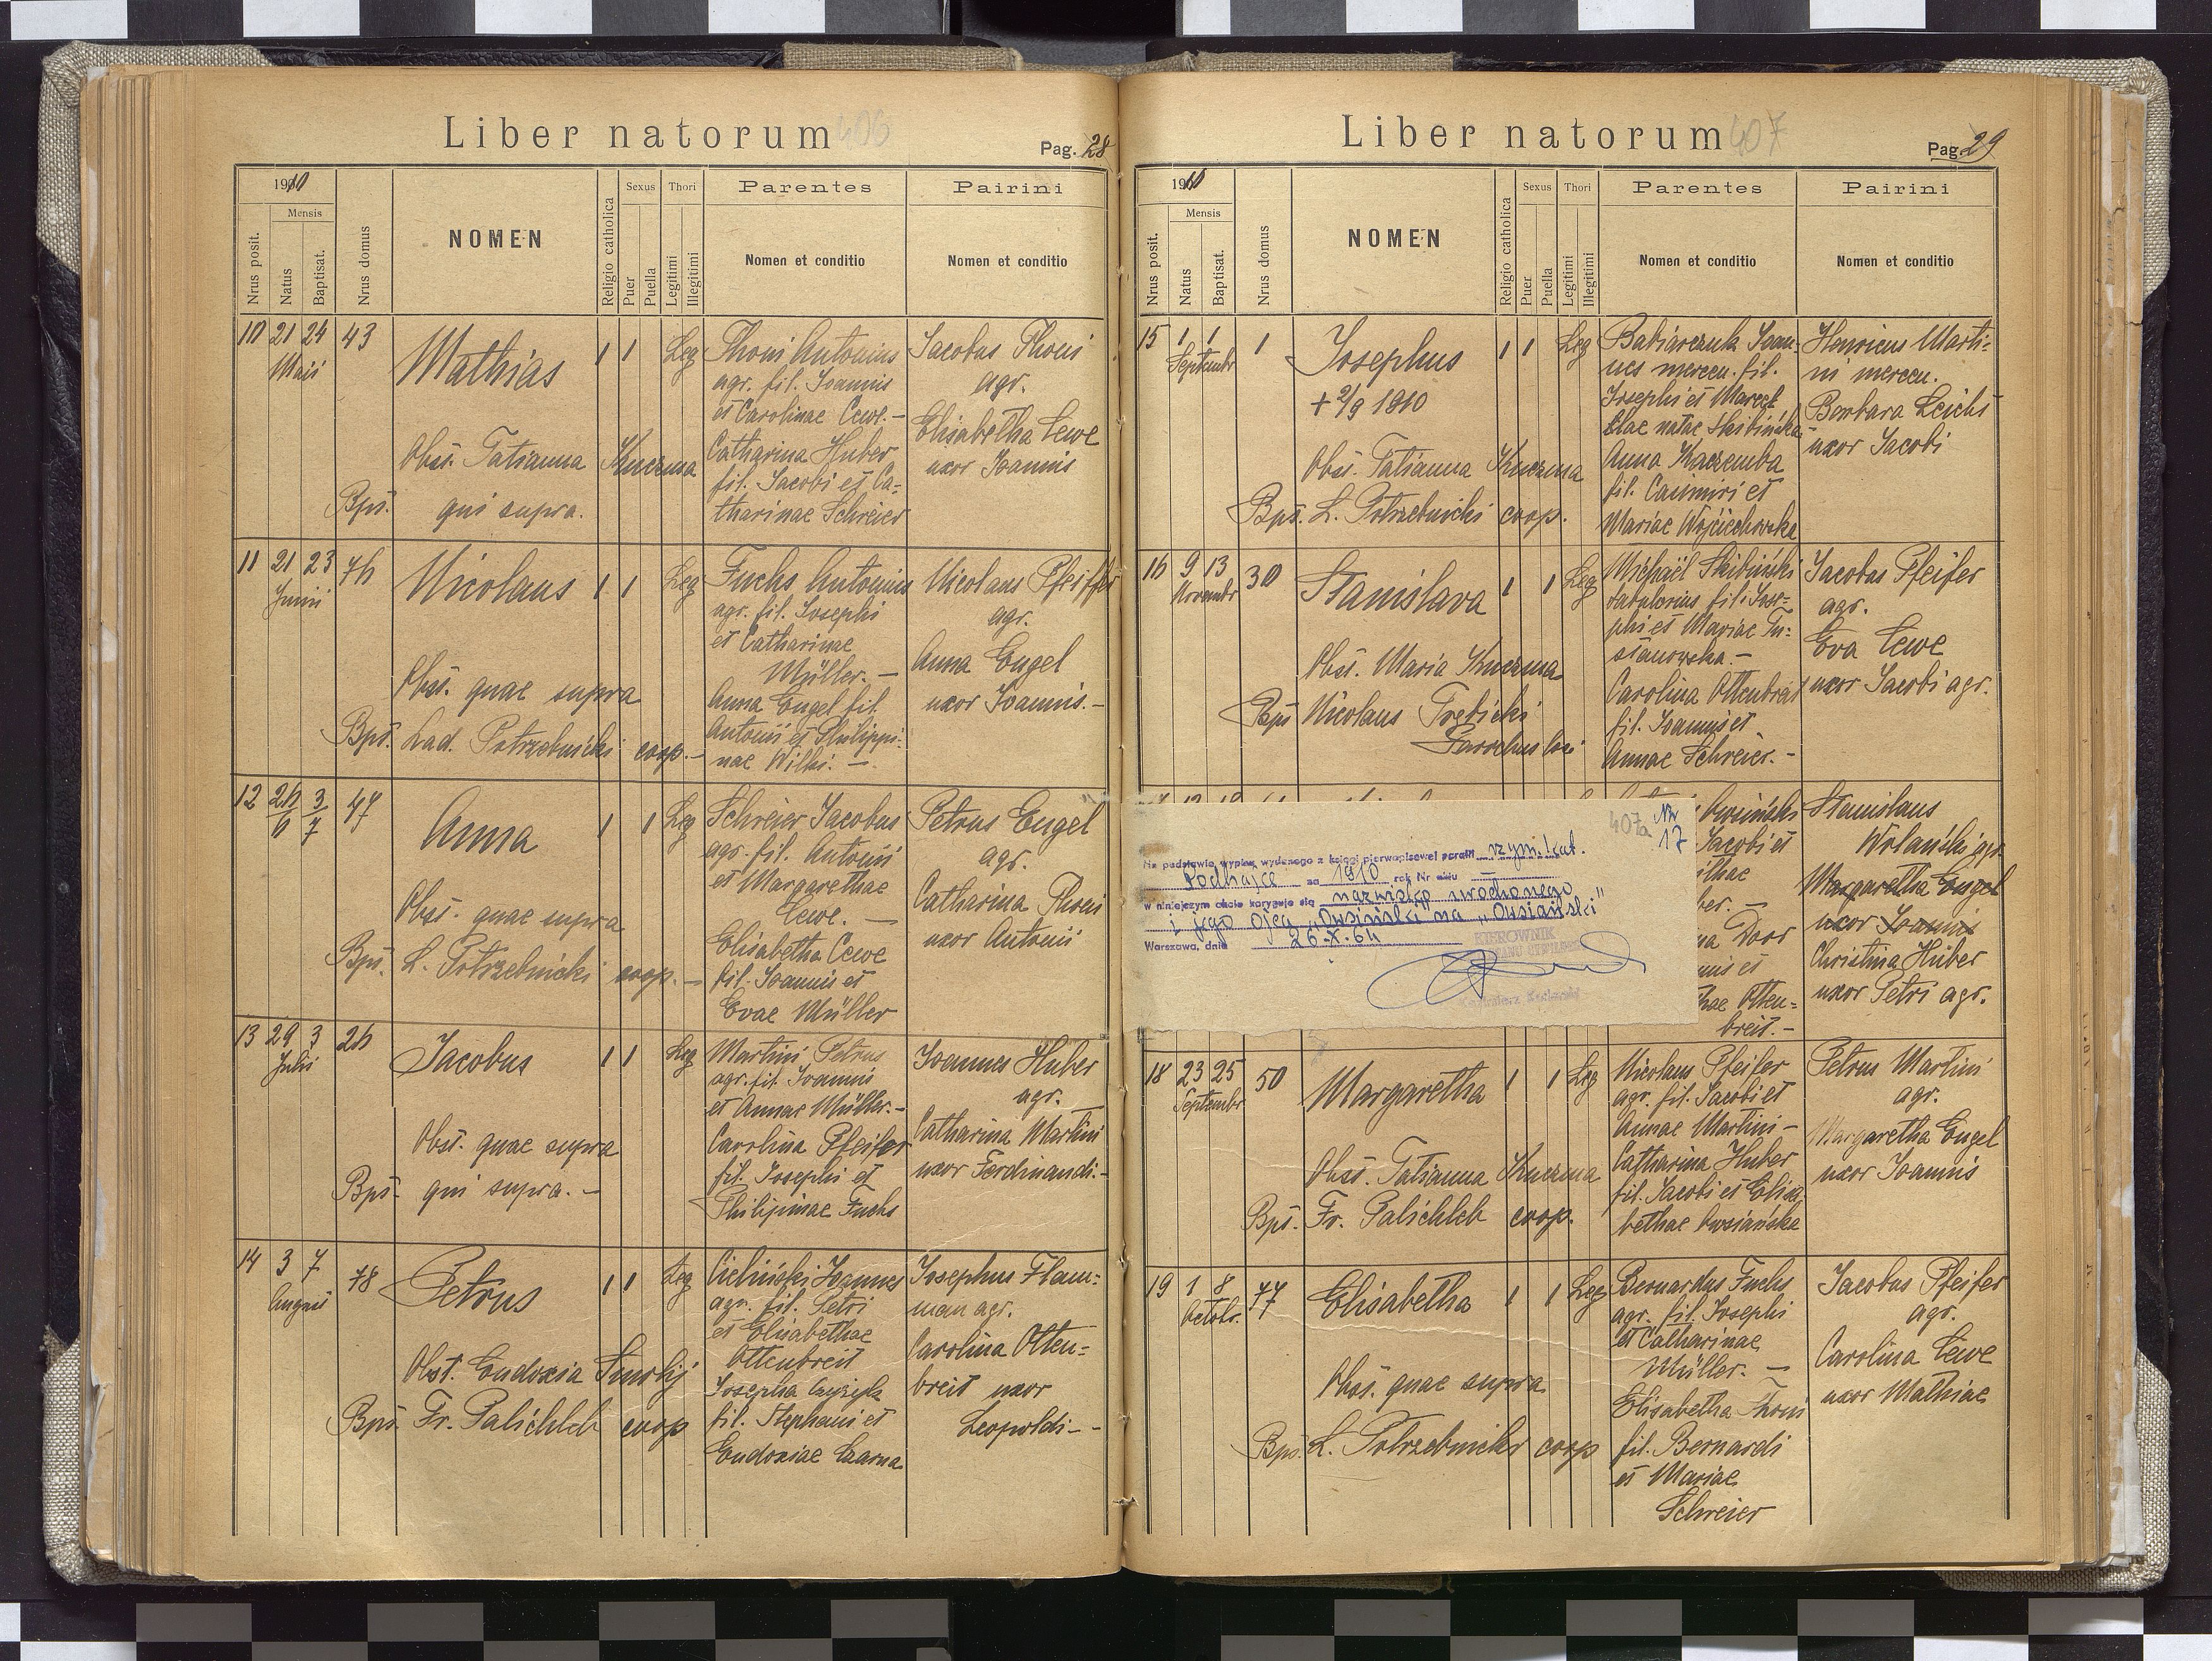 Liber natorum 406
Pag. 28
1910
Mensis
Nrus posit.
Natus
Baptisat.
Nrus domus
NOMEN
Religio catholica
Sexus
Puer
Puella
Thori
Legitimi
Illegitimi
Parentes
Nomen et conditio
Pairini
Nomen et conditio
10 21 24 43
Maii
Mathias
1 1 Leg
Obst. Tatianna Kuczma
Bpt. qui supra.
Thoni Antonius
agr. fil. Joannis
et Carolinae Lewe. -
Catharina Huber
fil. Jacobi et Ca=
tharinae Schreier
Jacobus Thoni
agr.
Elisabetha Lewe
uxor Joannis
11 21 23 76
Junii
Nicolaus
1 1 Leg
Obst. quae supra
Bpt. Lad. Potrzebnicki coop. -
Fuchs Antonius
agr. fil. Josephi
et Catharinae
Müller. -
Anna Engel fil.
Antonii et Philippi=
nae Wilhi. -
Nicolaus Pfeiffer
agr.
Anna Engel
uxor Joannis. -
12 26/6 3/7 47
Anna
1 1 Leg
Obst. quae supra
Bpt. L. Potrzebnicki coop. -
Schreier Jacobus
agr. fil. Antonii
et Margarethae
Lewe. -
Elisabetha Lewe
fil. Joannis et
Evae Müller
Petrus Engel
agr.
Catharina Thoni
uxor Antonii
13 29 3 26
Julii
Jacobus
1 1 Leg
Obst. quae supra
Bpt. qui supra. -
Martini Petrus
agr. fil. Joannis
et Annae Müller. -
Carolina Pfeifer
fil. Josephi et
Philipinae Fuchs
Joannes Huber
agr.
Catharina Martini
uxor Ferdinandi. -
14 3 7 78
August
Petrus
1 1 Leg
Obst. Eudoxia Smolij
Bpt. Fr. Palichleb coop
Cieliński Joannes
agr. fil. Petri
et Elisabethae
Ottenbreit
Josepha
fil. Stephani et
Eudoxiae
Josephus Flam=
man agr.
Carolina Otten=
breit uxor
Leopoldi - -
Liber natorum 407
Pag. 29
1910
Mensis
Nrus posit.
Natus
Baptisat.
Nrus domus
NOMEN
Religio catholica
Sexus
Puer
Puella
Thori
Legitimi
Illegitimi
Parentes
Nomen et conditio
Pairini
Nomen et conditio
15 1 1 1
Septembr
Josephus
+ 2/9 1910
1 1 Leg
Obst. Tatianna Kuczma
Bpt. L. Potrzebnicki coop.
Babiarczuk Joan=
nes mercen. fil.
Josephi et
natae Skibińska
Anna Kaczemba
fil. Casimiri et
Mariae Wojciechowska
Henricus Marti=
ni mercen.
Barbara Leicht
uxor Jacobi
16 9 13 30
Novembr
Stanislava
1 1 Leg
Obst. Maria Kuczma
Bpt Nicolaus Trębicki
Parochus loci
Michaël Skibiński
fil. Jose=
phi et Mariae Tu=
stanowska. -
Carolina Ottenbreit
fil. Joannis et
Annae Schreier. -
Jacobus Pfeifer
agr.
Eva Lewe
uxor Jacobi agr.
407a Nr 17
Na podstawie wypisu wydanego z księgi pierwopisowej parafii rzym. kat.
Podhajce za 1910 rok Nr aktu
w niniejszym akcie koryguje się nazwisko urodzonego
i jego ojca "Owsiński na "Owsiański"
Warszawa, dnia 26.X.64
KIEROWNIK
Owsiński
Jacobi et
Door
Otten=
breit. -
Stanislaus
Wolański agr.
Margaretha Engel
uxor Joannis
Christina Huber
uxor Petri agr.
18 23 25 50
Septembr
Margaretha
1 1 Leg
Obst. Tatianna Kuczma
Bpt. Fr. Palichleb coop.
Nicolaus Pfeifer
agr. fil. Jacobi et
Annae Martini -
Catharina Huber
fil. Jacobi et Elisa=
bethae Owsiańska
Petrus Martini
agr.
Margaretha Engel
uxor Joannis
19 1 8 77
Octobr.
Elisabetha
1 1 Leg
Obst. quae supra
Bpt. L. Potrzebnicki coop
Bernardus Fuchs
agr. fil. Josephi
et Catharinae
Müller. -
Elisabetha Thoni
fil. Bernardi
et Mariae
Schreier
Jacobus Pfeifer
agr.
Carolina Lewe
uxor Mathiae